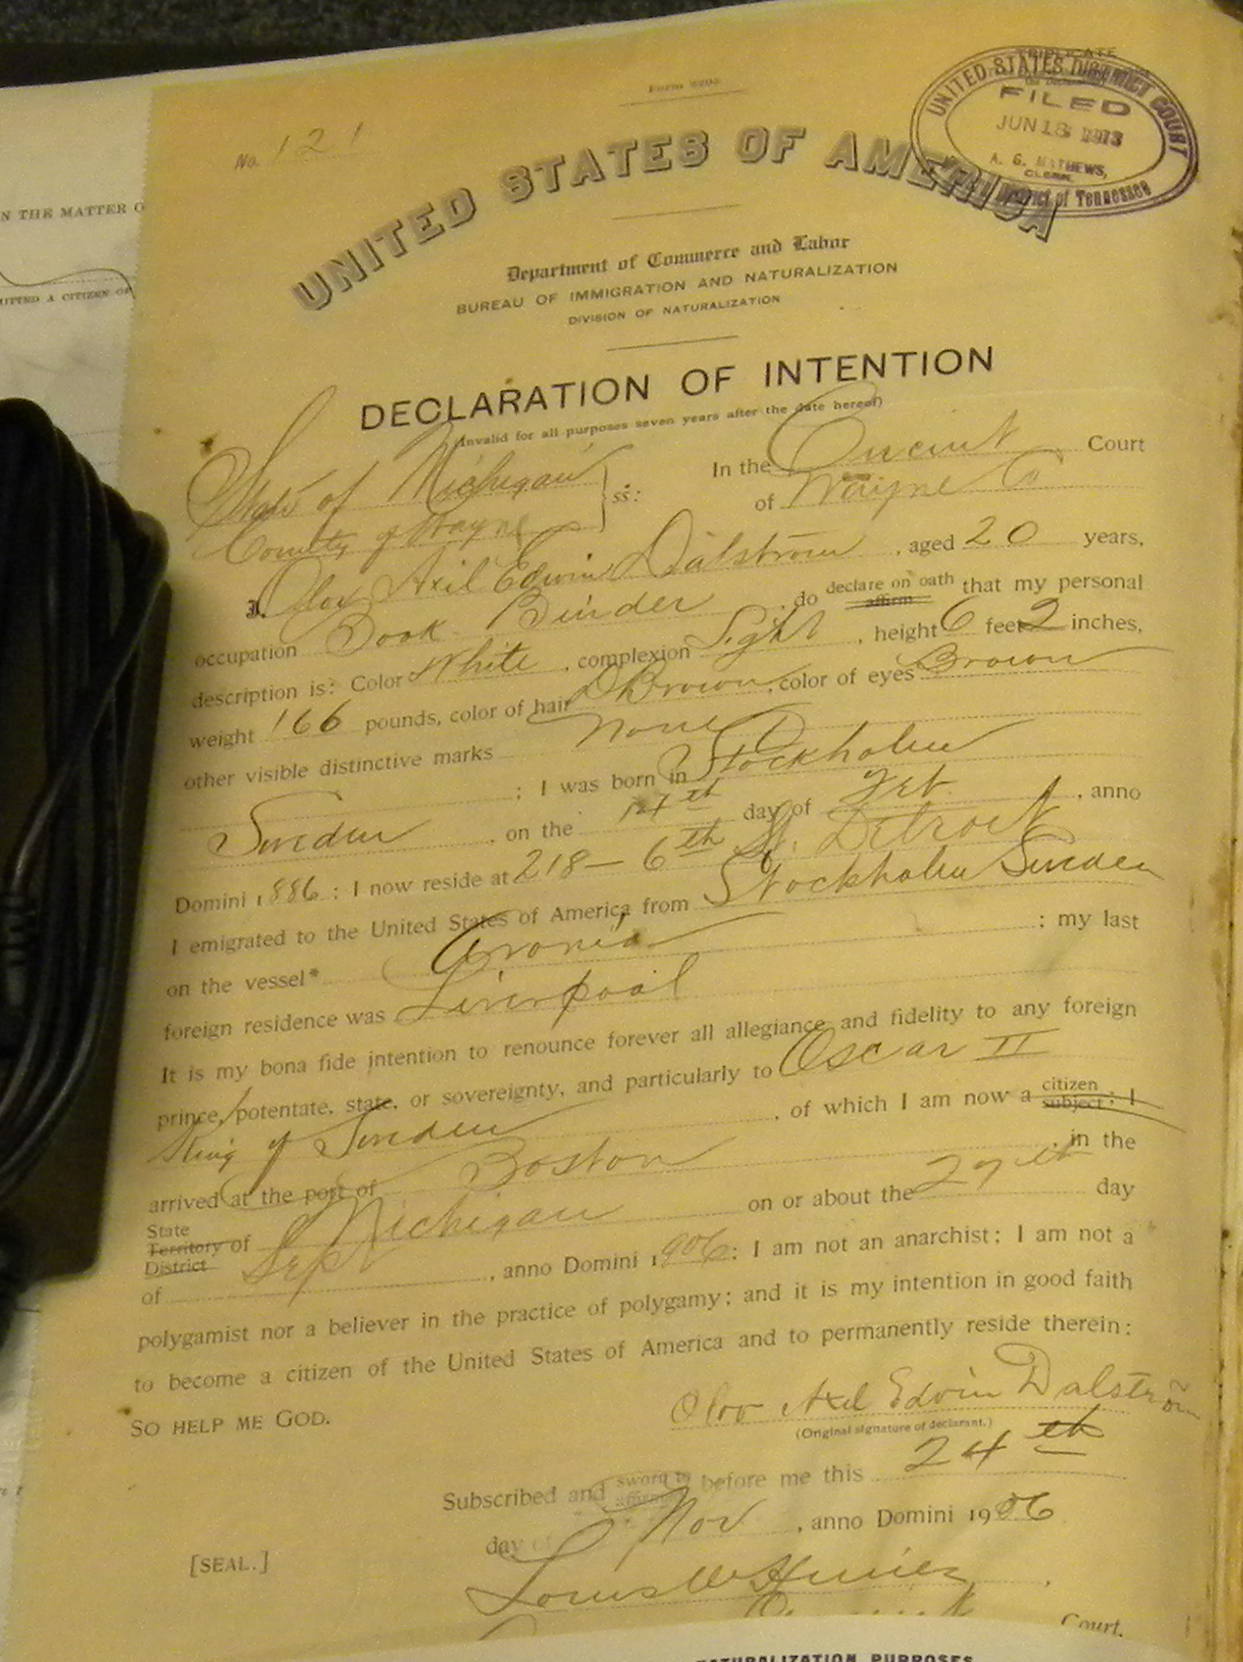 Form 2203
No. 121
TRIPLICATE
UNITED STATES DISTRICT COURT
FILED
JUN 18 1913
A. G. MATHEWS,
CLERK,
District of Tennessee
UNITED STATES OF AMERICA
Department of Commerce and Labor
BUREAU OF IMMIGRATION AND NATURALIZATION
DIVISION OF NATURALIZATION
DECLARATION OF INTENTION
(Invalid for all purposes seven years after the date hereof)
State of Michigan
County of Wayne
ss:
In the Circuit Court
of Wayne Co
I, Olov Axil Edwin Dalström, aged 20 years,
occupation Book Binder, do declare on oath affirm that my personal
description is: Color White, complexion Light, height 6 feet 2 inches,
weight 166 pounds, color of hair D Brown, color of eyes Brown
other visible distinctive marks None
; I was born in Stockholm
Sweden, on the 14th day of Feb, anno
Domini 1886; I now reside at 218 - 6th St. Detroit
I emigrated to the United States of America from Stockholm Sweden
on the vessel* ; my last
foreign residence was Liverpool
It is my bona fide intention to renounce forever all allegiance and fidelity to any foreign
prince, potentate, state, or sovereignty, and particularly to Oscar II
King of Sweden, of which I am now a citizen subject; I
arrived at the port of Boston, in the
State Territory District of Michigan on or about the 27th day
of Sept, anno Domini 1906; I am not an anarchist; I am not a
polygamist nor a believer in the practice of polygamy; and it is my intention in good faith
to become a citizen of the United States of America and to permanently reside therein:
SO HELP ME GOD.
Olov Axel Edvin Dalström
(Original signature of declarant.)
Subscribed and sworn to affirmed before me this 24th
day of Nov, anno Domini 1906
[SEAL.]
Louis W
Court.
N THE MATTER O
ITTED A CITIZEN OF
NATURALIZATION PURPOSES